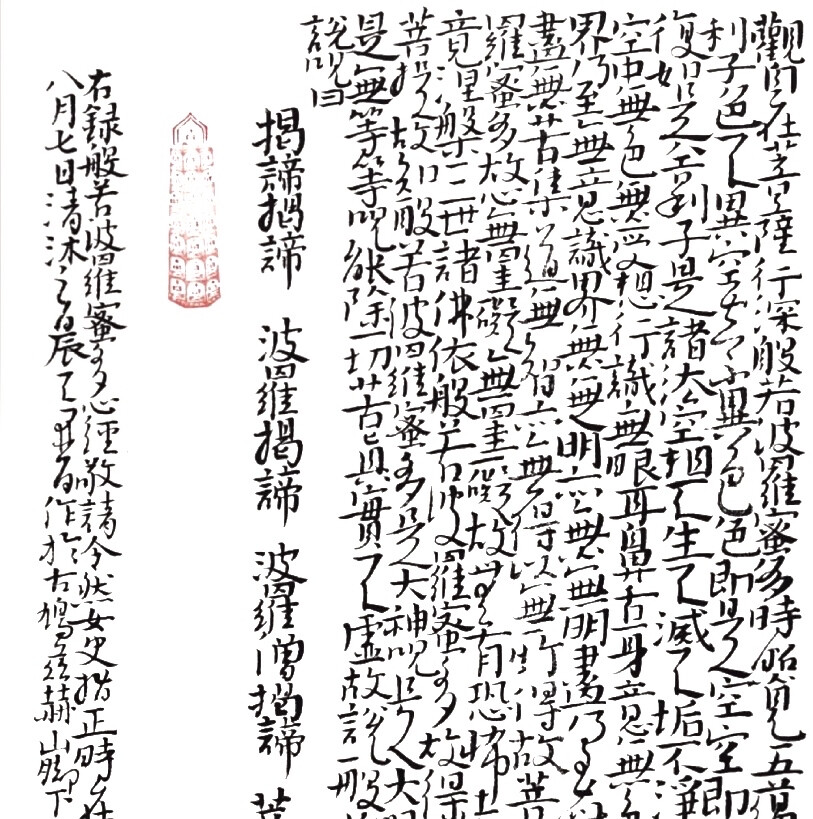 觀自在菩薩行深般若波羅蜜多時照見五蘊
利子色不異空空不異色色即是空空即
復如是舍利子是諸法空相不生不滅不垢不淨
空中無色無受想行識無眼耳鼻舌身意無色
界乃至無意識界無無明亦無無明盡乃至無
盡無苦集滅道無智亦無得以無所得故菩
羅蜜多故心無罣礙無罣礙故無有恐怖
竟涅槃三世諸佛依般若波羅蜜多故得
菩提故知般若波羅蜜多是大神咒是大明
是無等等咒能除一切苦真實不虛故說般
說咒曰
揭諦揭諦 波羅揭諦 波羅僧揭諦 菩
右錄般若波羅蜜多心經敬請今然女史指正時在
八月七日清沐之日晨作於古鳩茲赭山腳下